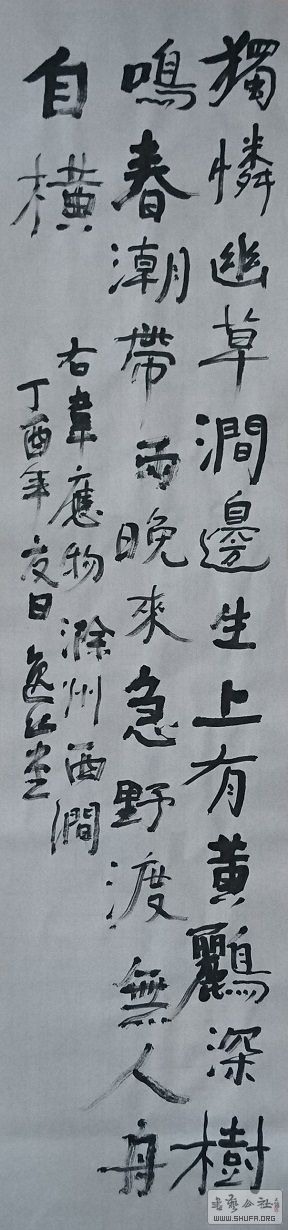 獨憐幽草澗邊生上有黃鸝深樹
鳴春潮帶雨晚來急野渡無人舟
自橫
右韋應物滁州西澗
丁酉年夜日逸江堂
书艺公社
WWW.SHUFA.ORG